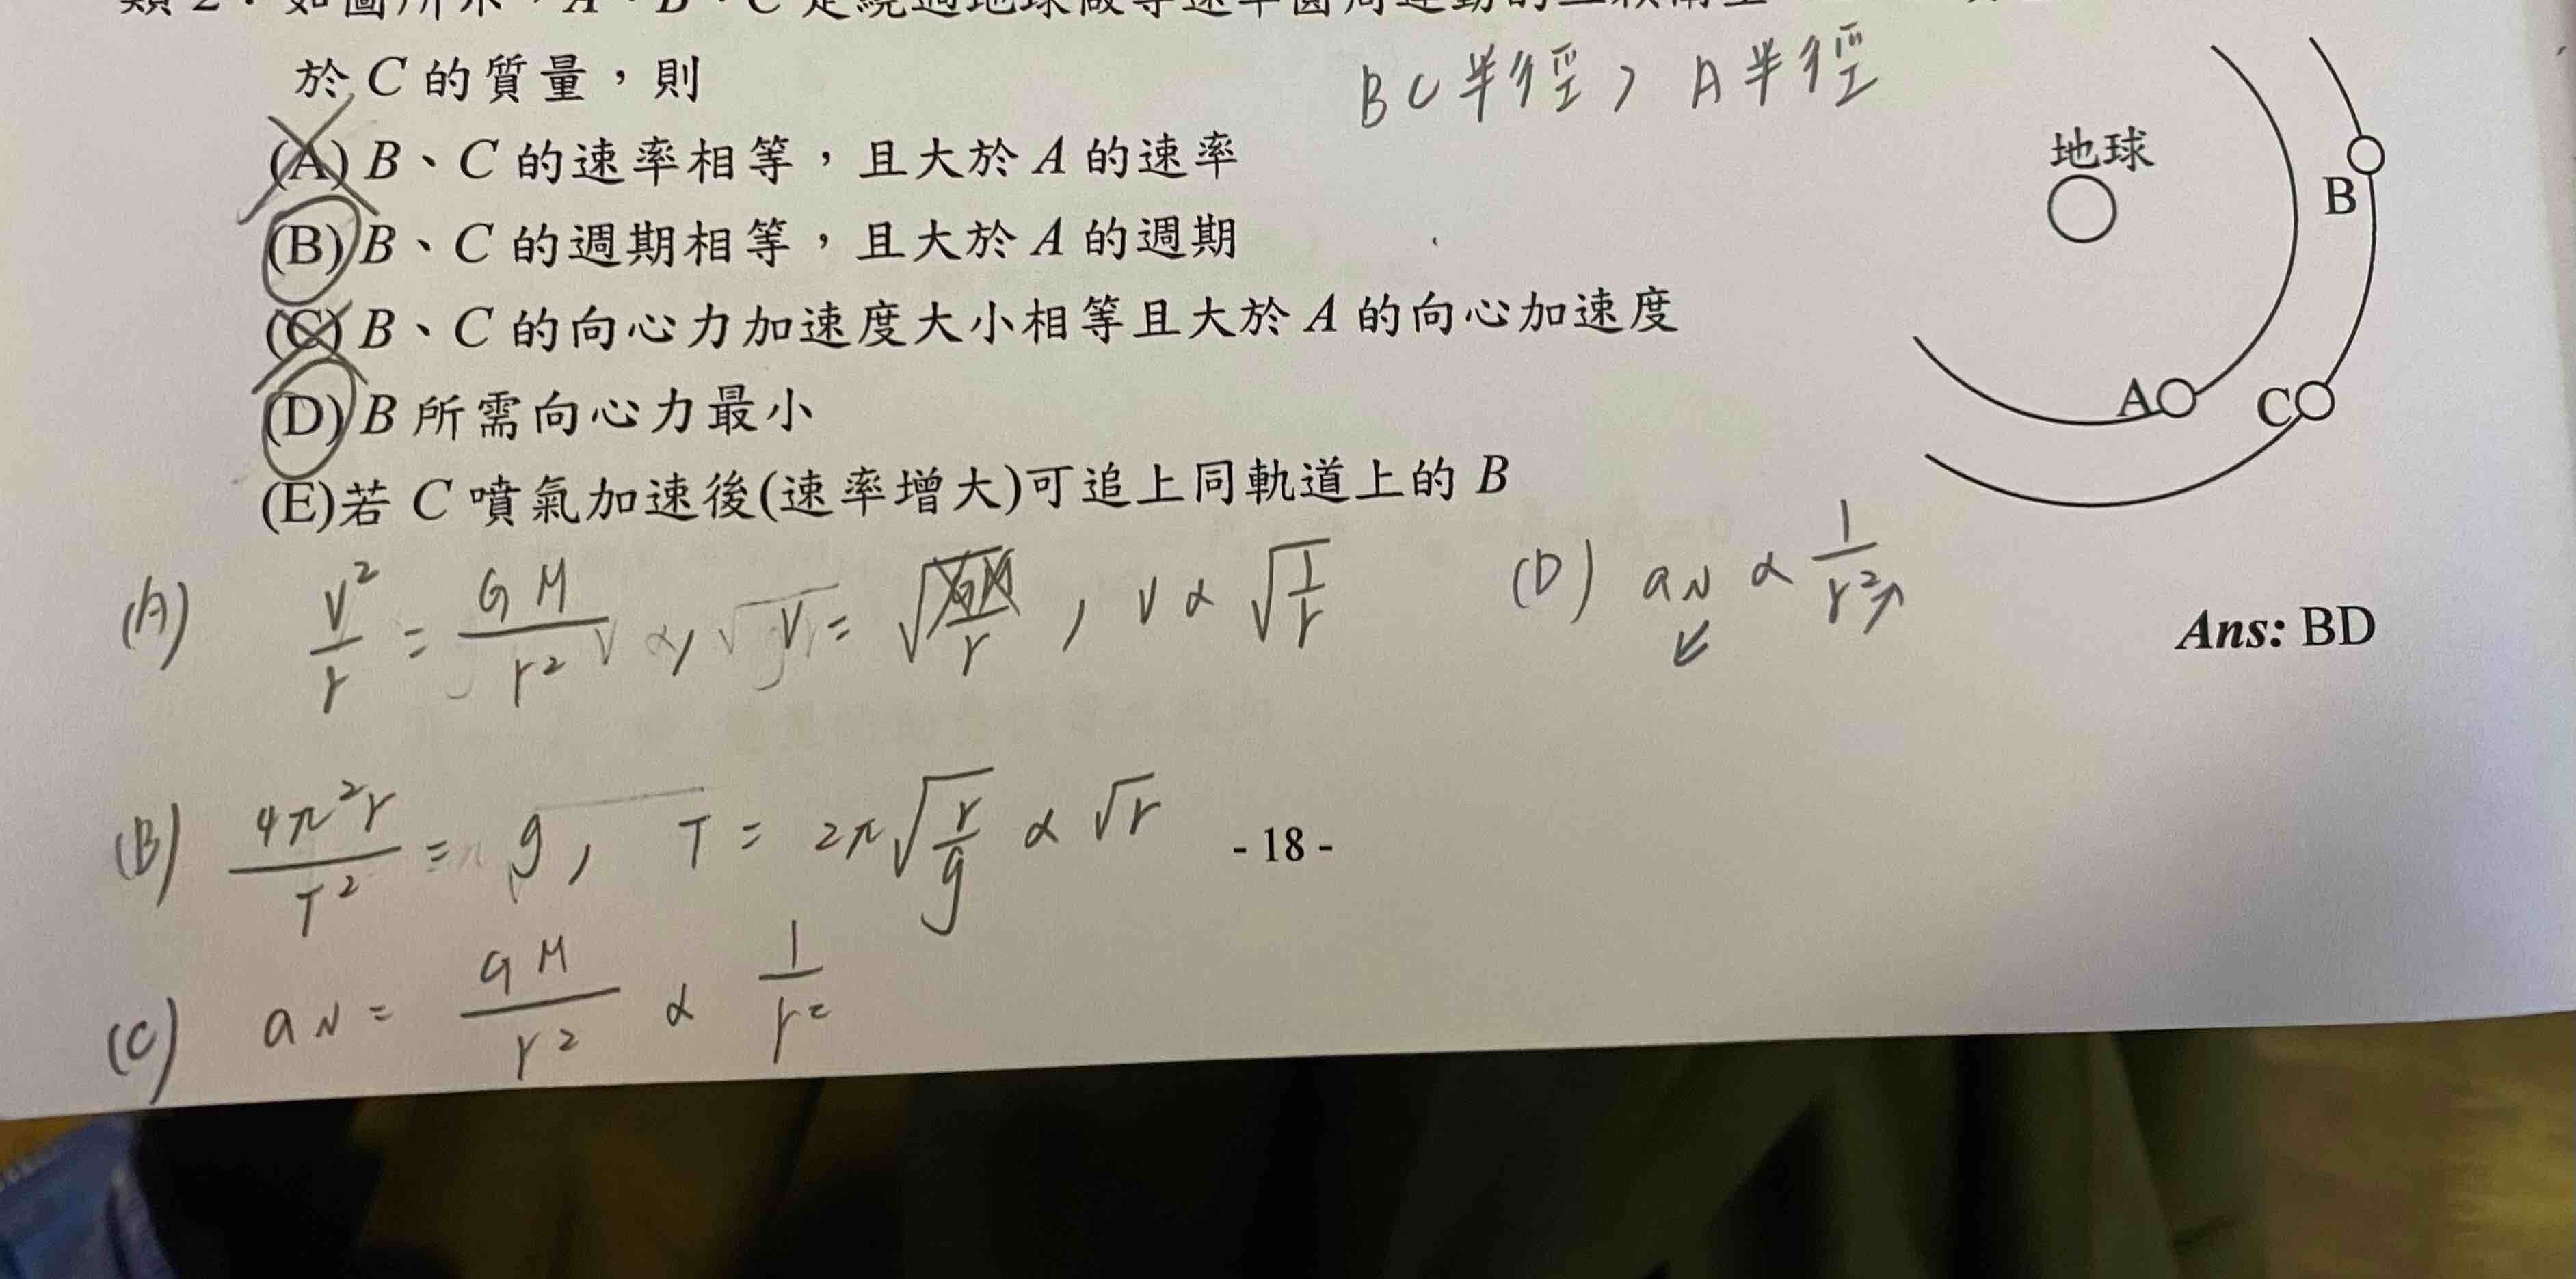 於 C 的質量，則
BC半徑 > A半徑
(A) B、C 的速率相等，且大於 A 的速率
(B) B、C 的週期相等，且大於 A 的週期
(C) B、C 的向心力加速度大小相等且大於 A 的向心加速度
(D) B 所需向心力最小
(E)若 C 噴氣加速後(速率增大)可追上同軌道上的 B
地球
B
A
C
(A) v²/r = GM/r², v = √(GM/r), v ∝ √(1/r)
(D) aN ∝ 1/r²↗
↙
Ans: BD
(B) 4π²r/T² = g, T = 2π√(r/g) ∝ √r
- 18 -
(C) aN = GM/r² ∝ 1/r²